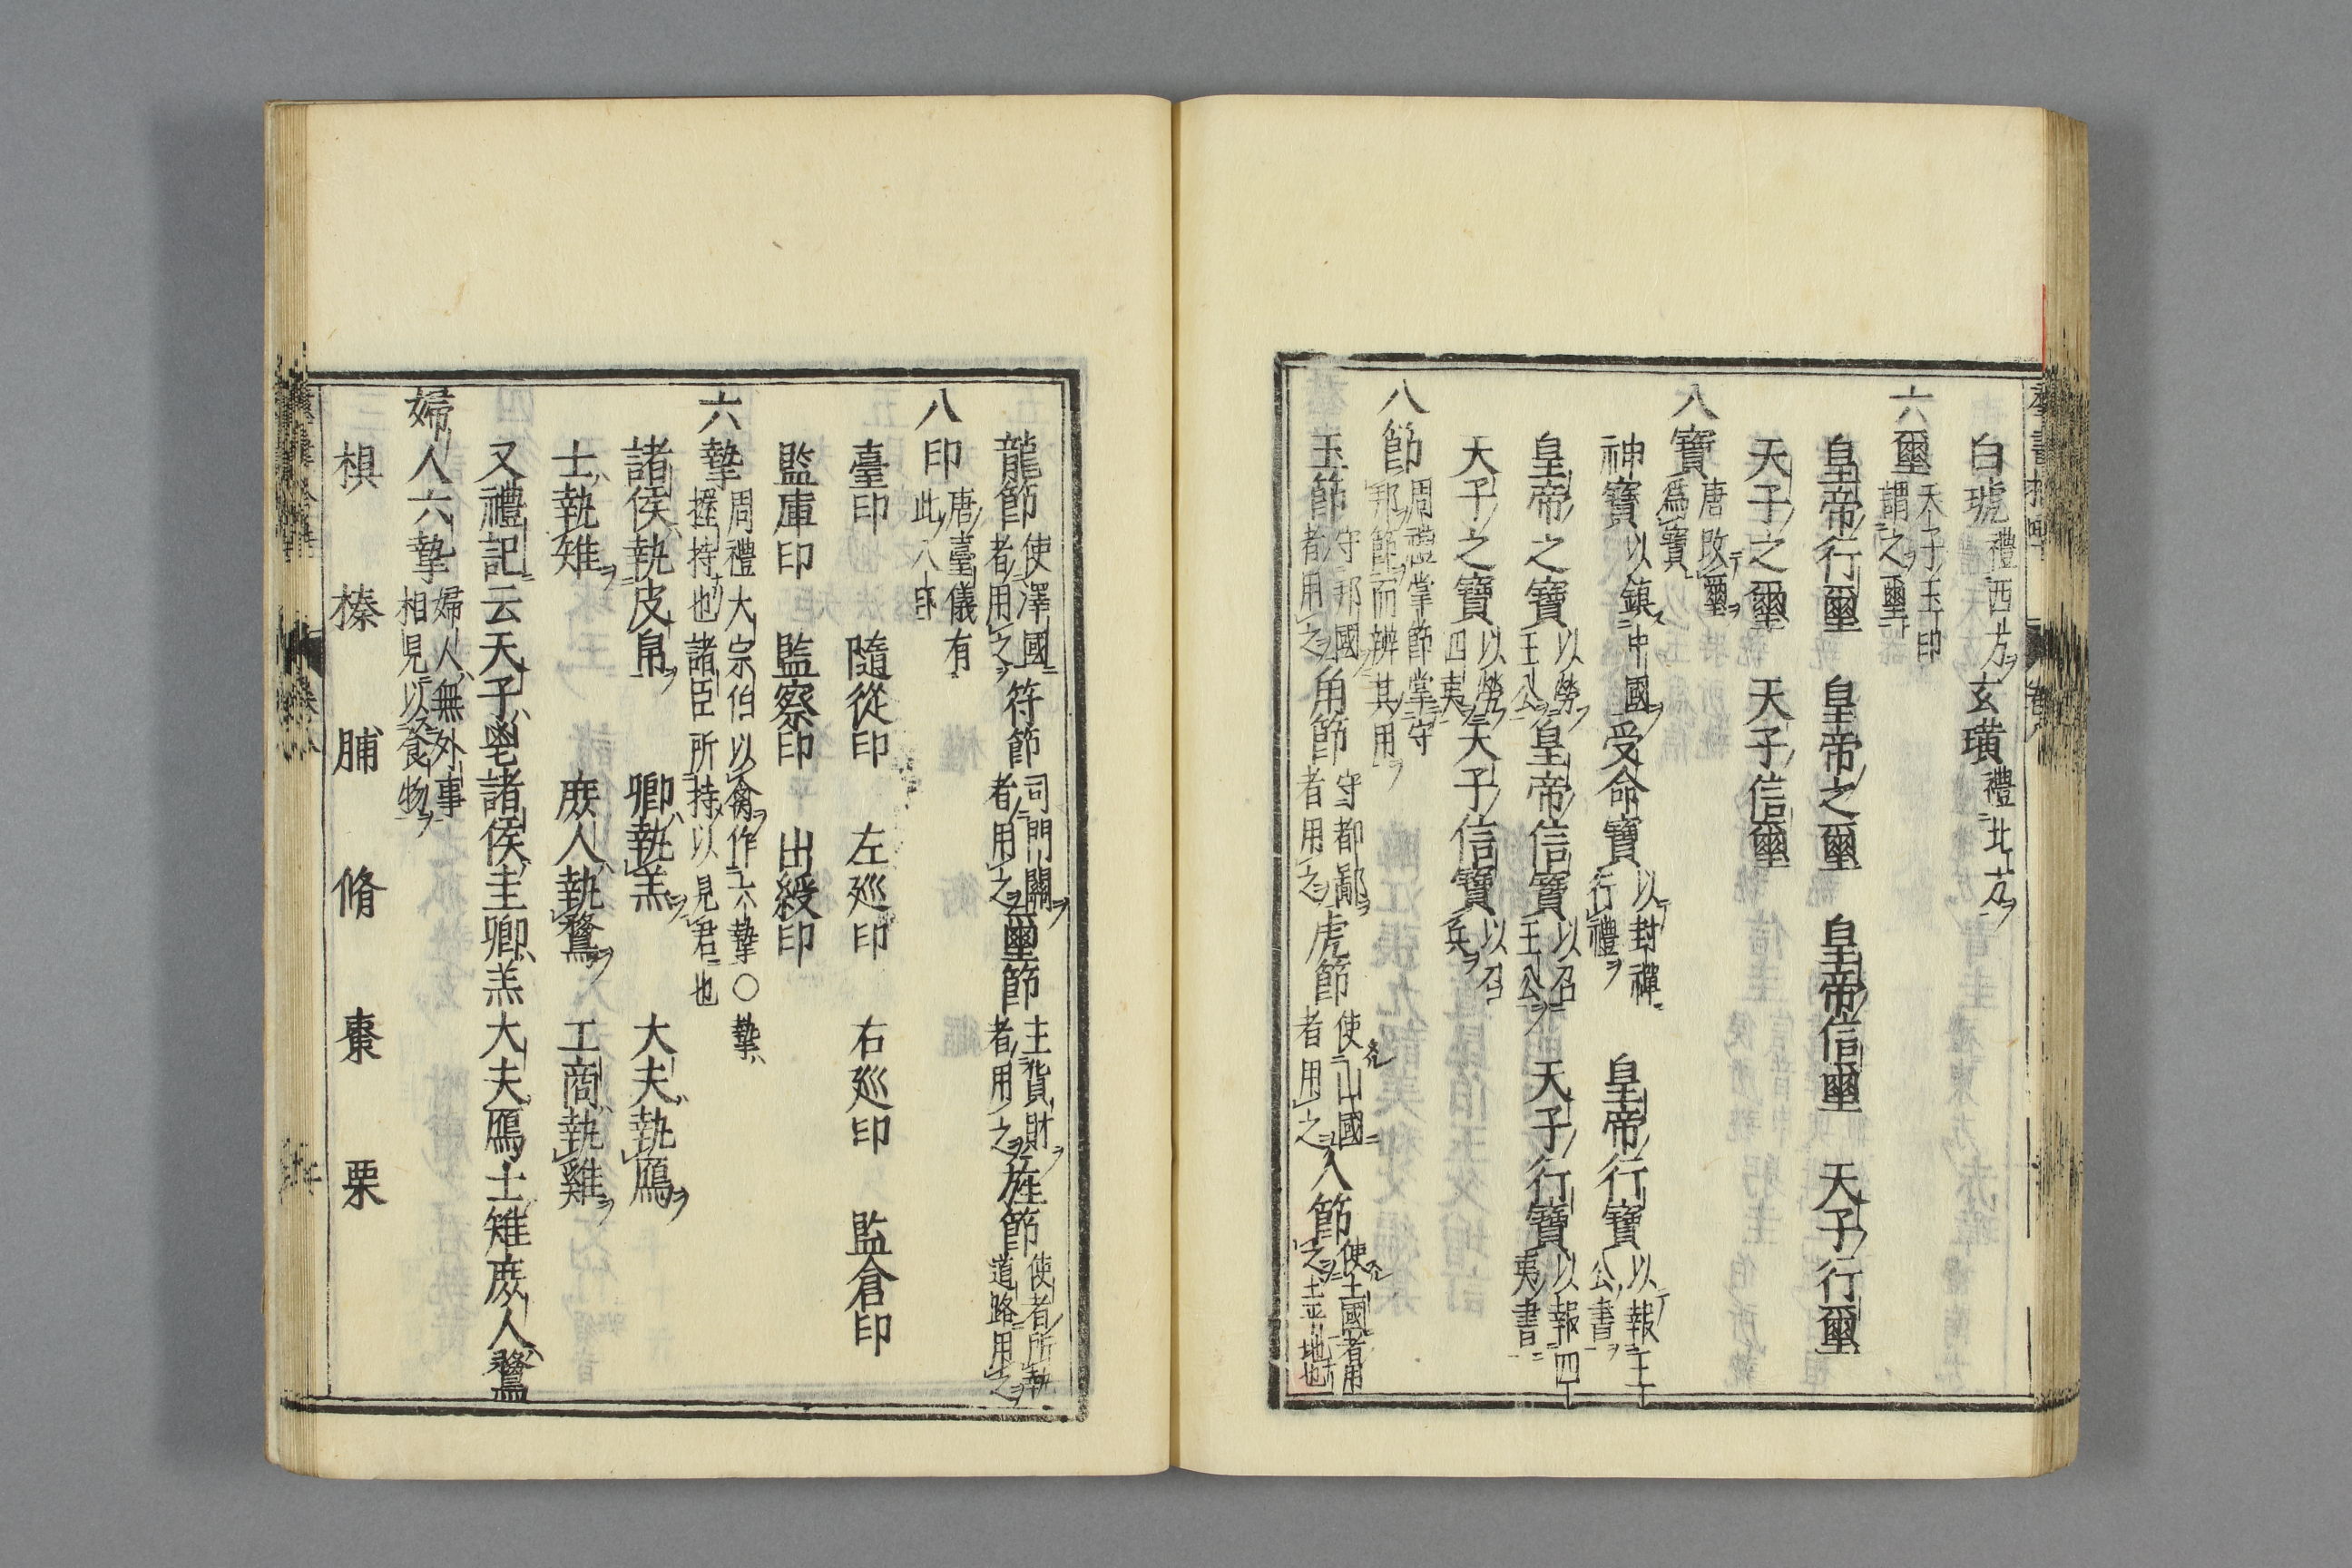 白琥禮西方玄璜禮北方
六璽天子玉印謂之璽
皇帝行璽　皇帝之璽　皇帝信璽　天子行璽
天子之璽　天子信璽
八寶唐改璽爲寶
神寶以鎮中國受命寶以封禪行禮　皇帝行寶以報王公書
皇帝之寶以勞王公皇帝信寶以召王公　天子行寶以報四夷書
天子之寶以勞四夷天子信寶以召兵
八節周禮掌節掌守邦節而辨其用
玉節守邦國者用之角節守都鄙者用之虎節使山國者用之人節使土國者用之土平地也
龍節使澤國者用之符節司門關者用之璽節主貨財者用之旌節使者所執道路用之
八印唐臺儀有此八印
臺印　隨從印　左廵印　右廵印　監倉印
監庫印　監察印　出綬印
六摯周禮大宗伯以禽作六摯○摯握持也諸臣所持以見君也
諸侯執皮帛　卿執羔　大夫執鴈
士執雉　庻人執鶩　工商執雞
又禮記云天子鬯諸侯圭卿羔大夫鴈士雉庻人鶩
婦人六摯婦人無外事相見以食物
椇　榛　脯　脩　棗　栗